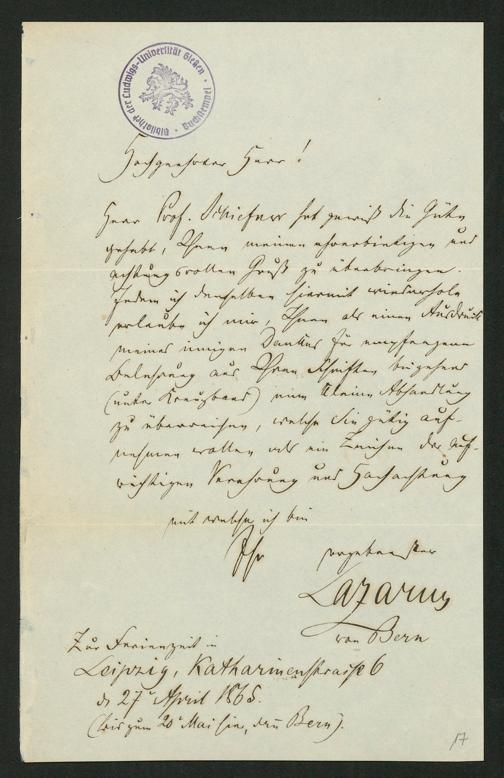 Bibliothek der Ludwigs-Universität Gießen · Buchstempel ·
Hochgeehrter Herr!
Herr Prof. Schiefner hat gewiß die Güte
gehabt, Ihnen meinen ehrerbietigen und
achtungsvollen Gruß zu überbringen.
Indem ich denselben hiermit wiederhole
erlaube ich mir, Ihnen als einen Ausdruck
meines innigen Dankes für empfangene
Belehrung aus Ihren Schriften beigehend
(unter Kreuzband) eine kleine Abhandlung
zu überreichen, welche Sie gütig auf-
nehmen wollen als ein Zeichen der auf-
richtigen Verehrung und Hochachtung
mit welcher ich bin
Ihr ergebenster
Lazarus
von Bern
Zur Ferienzeit in
Leipzig, Katharinenstraße 6
d. 27 April 1865.
(bis zum 20 Mai hier, dann Bern).
17